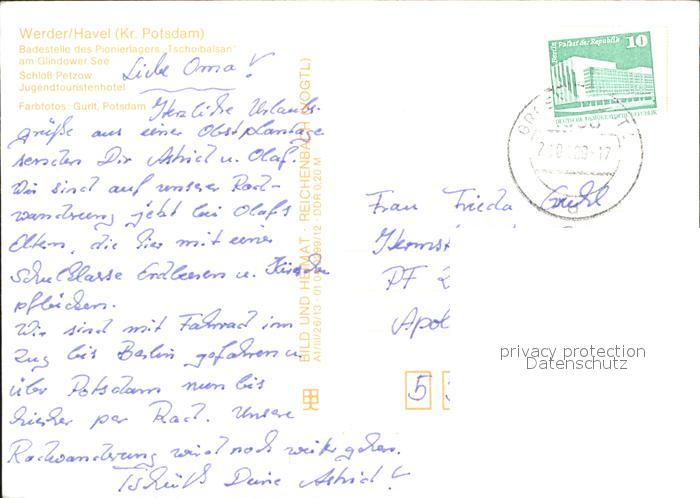 Werder/Havel (Kr. Potsdam)
Badestelle des Pionierlagers „Tschoibalsan"
am Glindower See
Schloß Petzow
Jugendtouristenhotel
Farbfotos: Gurlt, Potsdam
Liebe Oma!
Herzliche Urlaubs-
grüße aus einer Obstplantage
senden Dir Astrid u. Olaf.
Wir sind auf unserer Rad-
wanderung jetzt bei Olafs
Eltern, die hier mit einer
Schulklasse Erdbeeren u. Kirschen
pflücken.
Wir sind mit Fahrrad im
Zug bis Berlin gefahren u.
über Potsdam nun bis
hierher per Rad. Unsere
Radwanderung wird noch weiter gehen.
Tschüß Deine Astrid!
BILD UND HEIMAT · REICHENBACH (VOGTL)
A1/III/26/13 · DDR 0,20 M
Berlin Palast der Republik
10
DEUTSCHE DEMOKRATISCHE REPUBLIK
Frau Frieda
PF 2
Apol
5
privacy protection
Datenschutz